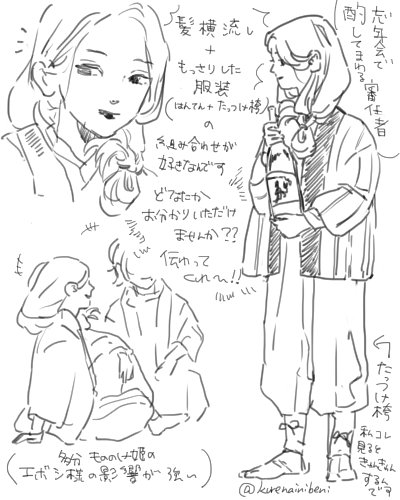 忘年会で
酌してまわる
審神者
髪横流し
+
もっさりした
服装
(はんてん+たっつけ袴)
の
組み合わせが
好きなんです
どなたか
お分かりいただけ
ませんか??
伝わって
くれ〜!!
たっつけ袴
私コレ
見ると
きゅんきゅん
するん
です
(多分 もののけ姫の
エボシ様の影響が強い)
@kurenainibeni